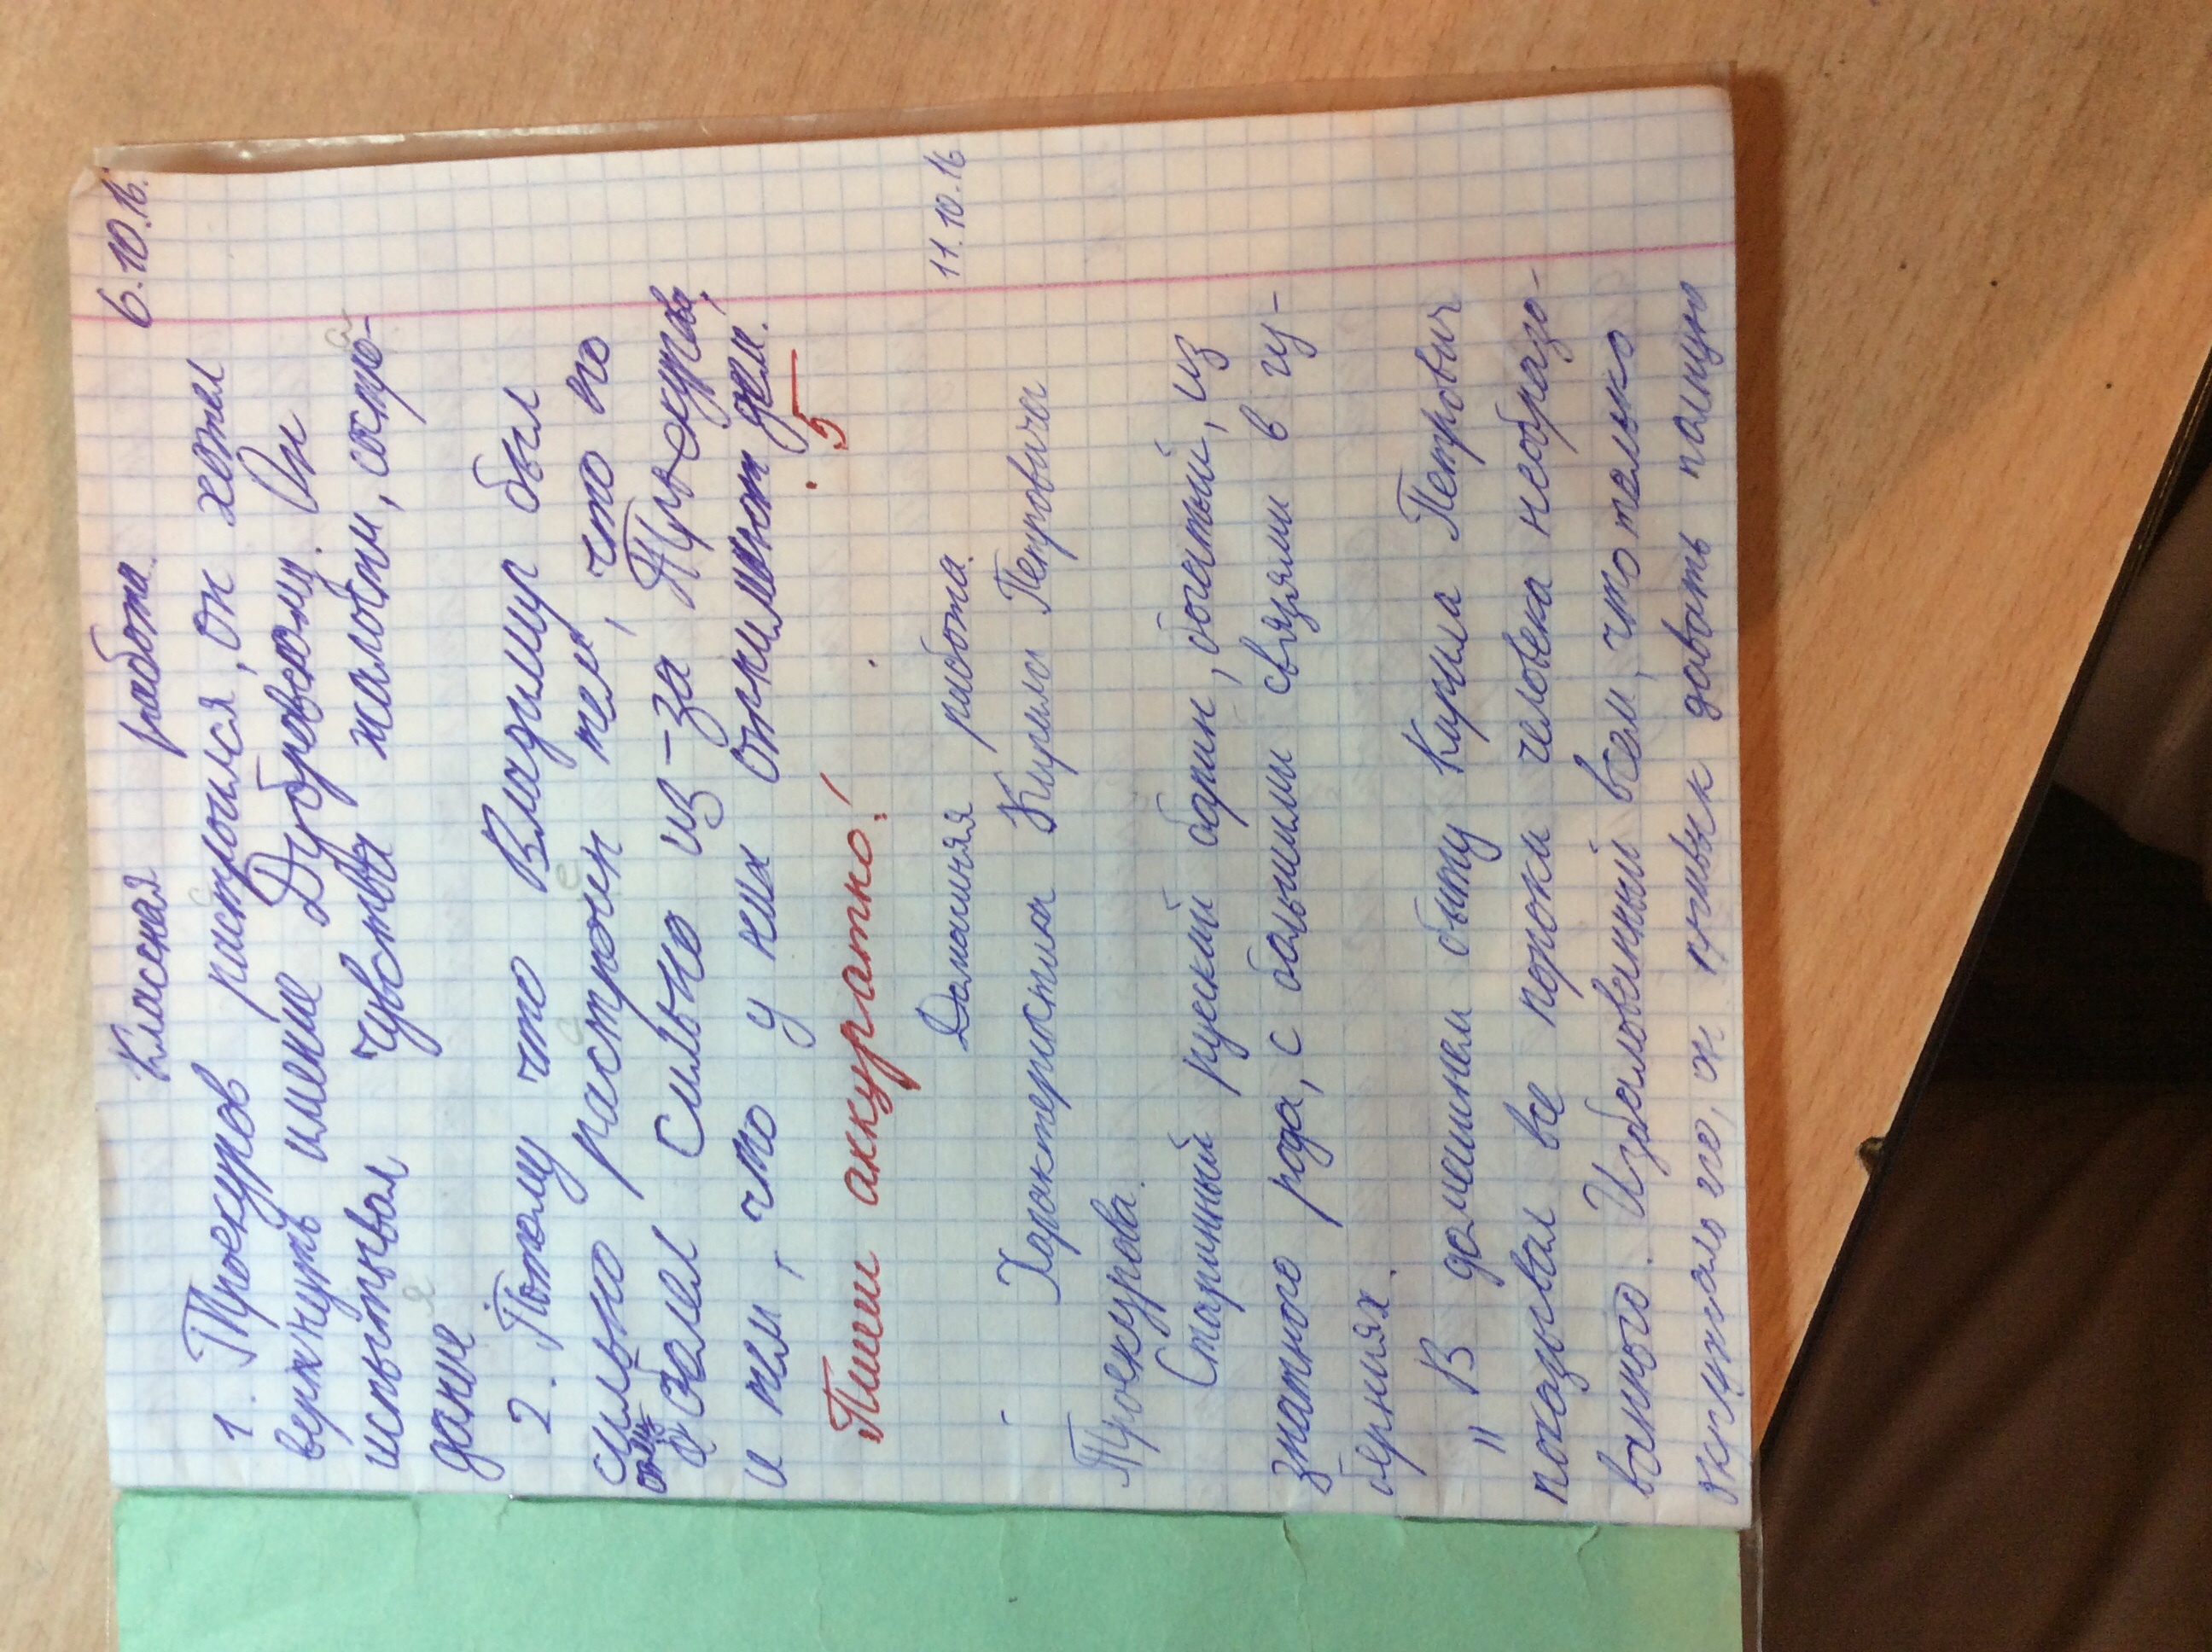 6.10.16.
Классная работа.
1. Троекуров растроился, он хотел
вернуть имение Дубровскому. Он
испытывал чувства жалости, состро-
дание
2. Потому что Владимир был
сильно растроен тем, что его
отец заболел сильно из-за Троекурова,
и тем, что у них отнимают дом.
5
Пиши аккуратно!
11.10.16
Домашняя работа.
Характеристика Кирила Петровича
Троекурова.
Старинный руский барин, богатый, из
знатного рода, с большими связями в гу-
берниях.
"В домашнем быту Кирила Петрович
показывал все пороки человека необразо-
ванного. Избалованный всем, что только
окружало его, он привык давать полную